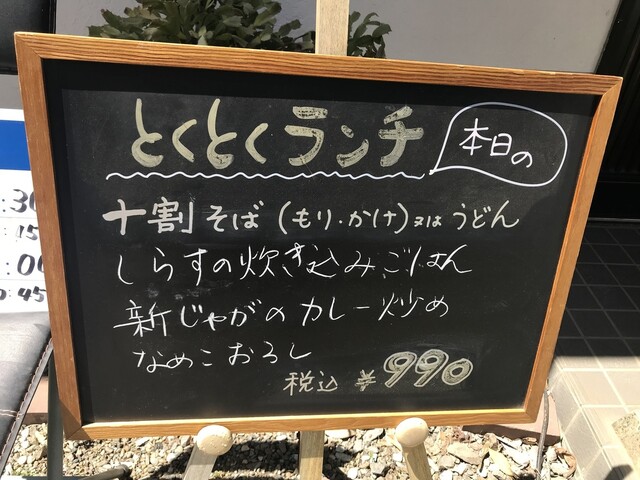 本日の
とくとくランチ
十割そば(もり・かけ)又はうどん
しらすの炊き込みごはん
新じゃがのカレー炒め
なめこおろし
税込 ¥990